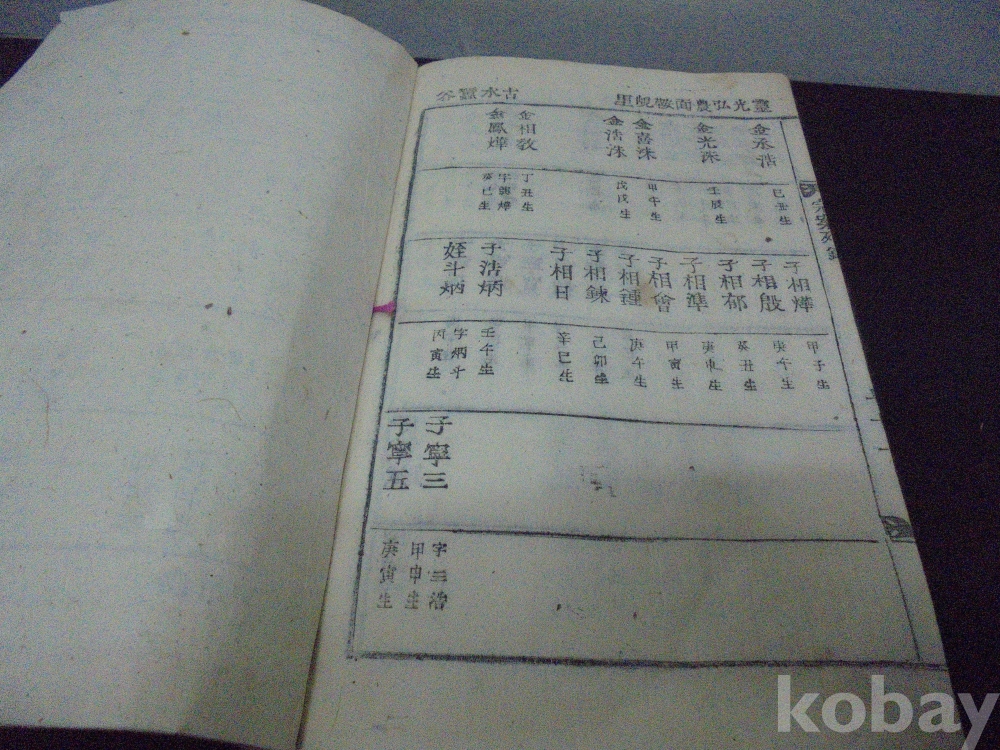 靈光弘農面鞍峴里
古水蠶谷
金丞浩
金光洙
金喜洙
金浩洙
金相敎
金鳳燁
己丑生
壬辰生
甲午生
戊戌生
丁丑生
字 燁
癸巳生
子相燁
子相殷
子相郁
子相準
子相會
子相鍾
子相鍊
子相日
子浩炳
姪斗炳
甲子生
庚午生
癸丑生
庚申生
甲寅生
庚午生
己卯生
辛巳生
壬午生
字炳斗
丙寅生
子寧三
子寧五
字三浩
甲申生
庚寅生
kobay